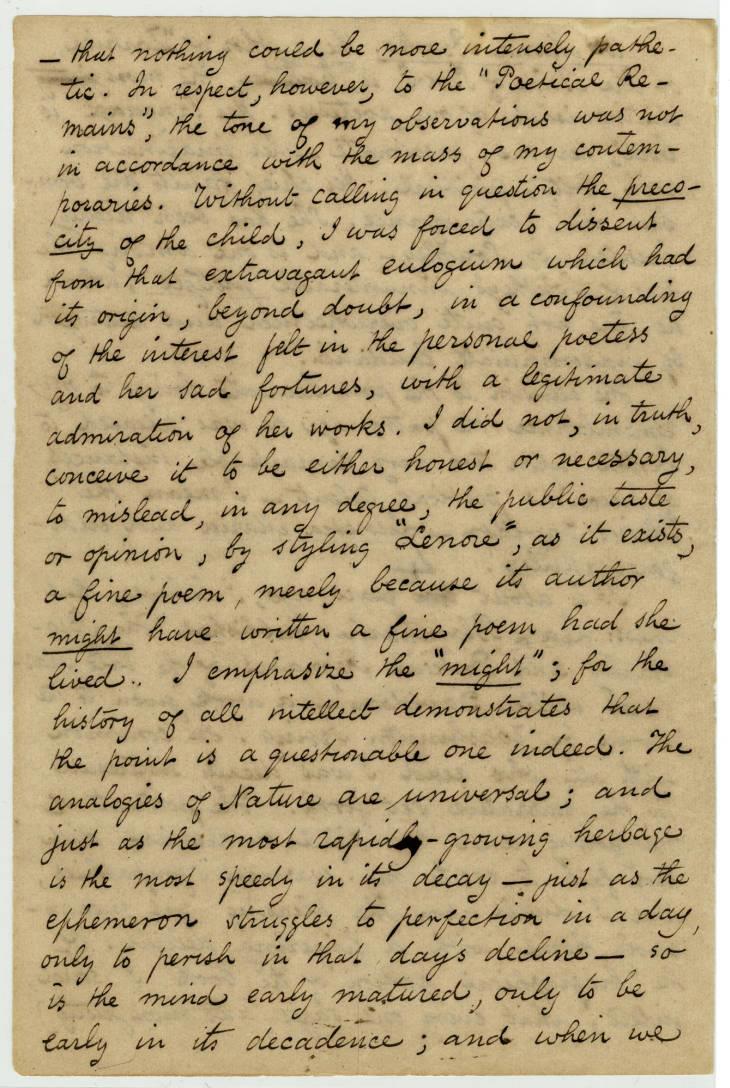 — that nothing could be more intensely pathe-
tic. In respect, however, to the "Poetical Re-
mains", the tone of my observations was not
in accordance with the mass of my contem-
poraries. Without calling in question the preco-
city of the child, I was forced to dissent
from that extravagant eulogium which had
its origin, beyond doubt, in a confounding
of the interest felt in the personal poetess
and her sad fortunes, with a legitimate
admiration of her works. I did not, in truth,
conceive it to be either honest or necessary,
to mislead, in any degree, the public taste
or opinion, by styling "Lenore", as it exists,
a fine poem, merely because its author
might have written a fine poem had she
lived.. I emphasize the "might"; for the
history of all intellect demonstrates that
the point is a questionable one indeed. The
analogies of Nature are universal; and
just as the most rapidly-growing herbage
is the most speedy in its decay — just as the
ephemeron struggles to perfection in a day,
only to perish in that day's decline — so
is the mind early matured, only to be
early in its decadence; and when we